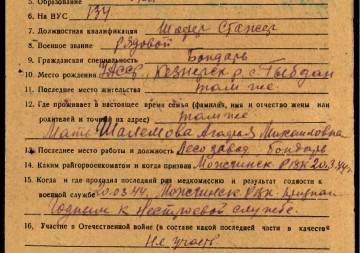 5. Образование
6. На ВУС 134
7. Должностная квалификация Шофер Стажер
8. Военное звание Рядовой
9. Гражданская специальность Бондарь
10. Место рождения УАССР,
11. Последнее место жительства там же.
12. Где проживает в настоящее время семья (фамилия, имя и отчество жены или
родителей и точный их адрес) там же
Мать Михайловна
13. Последнее место работы и должность Лесозавод Бондарь
14. Каким райгорвоенкоматом и когда призван Можгинск РВК 20.3.44г.
15. Когда и где проходил последний раз медкомиссию и результат годности к
военной службе 20.03.44, Можгинск РВК признан
Годным к нестроевой службе.
16. Участие в Отечественной войне (в составе какой последней части в качеств
Не участ